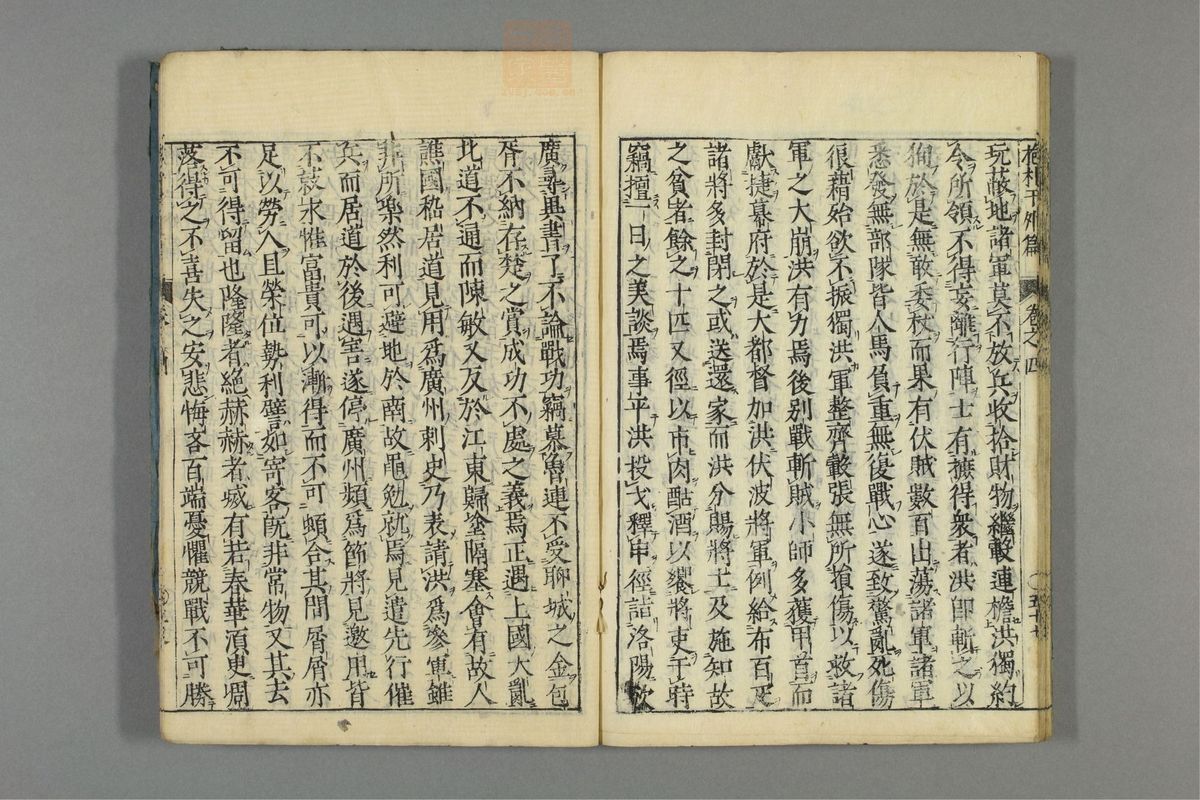 抱朴子外篇 卷之四
玩蔽地諸軍莫不放兵收拾財物繼轂連檐洪獨約
令所領不得妄離行陣士有摭得衆者洪即斬之以
徇於是無敢委杖而果有伏賊數百出蕩諸軍諸軍
悉發無部隊皆人馬負重無復戰心遂致驚亂死傷
很藉始欲不振獨洪軍整齊轂張無所損傷以救諸
軍之大崩洪有力焉後别戰斬賊小帥多獲甲首而
獻捷幕府於是大都督加洪伏波將軍例給布百疋
諸將多封閉之或送還家而洪分賜將士及施知故
之貧者餘之十匹又徑以市肉酤酒以饗將吏于時
竊擅一日之美談焉事平洪投戈釋甲徑詣洛陽欲
廣尋異書了不論戰功竊慕魯連不受聊城之金包
胥不納存楚之賞成功不處之義焉正遇上國大亂
北道不通而陳敏又反於江東歸塗隔塞會有故人
譙國嵇居道見用爲廣州刺史乃表請洪爲參軍雖
非所樂然利可避地於南故黽勉就焉見遣先行催
兵而居道於後遇害遂停廣州頻爲節將見邀用皆
不就永惟富貴可以漸得而不可頓合其間屑屑亦
足以勞人且榮位勢利譬如寄客既非常物又其去
不可得留也隆隆者絕赫赫者滅有若春華須臾凋
落得之不喜失之安悲悔吝百端憂懼兢戰不可勝